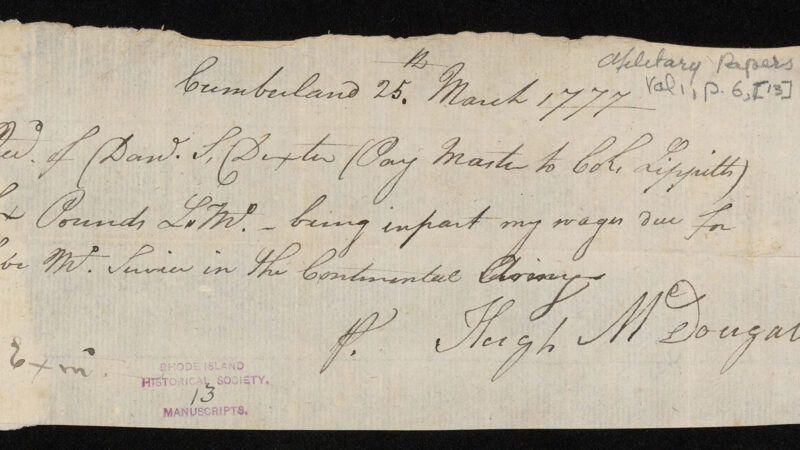 Military Papers
Vol 1, p. 6, [13]
Cumberland 25.th March 1777
Recd. of Davd. S. Dexter (Pay Master to Col. Lippitts)
Pounds L. My. – being in part my wages due for
Mo. Service in the Continental Army
Hugh McDougal
Exd.
RHODE ISLAND
HISTORICAL SOCIETY.
13
MANUSCRIPTS.